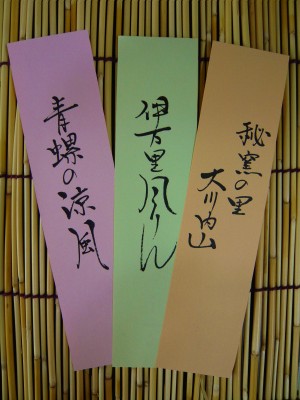 秘窯の里
大川内山
伊万里風りん
青螺の涼風